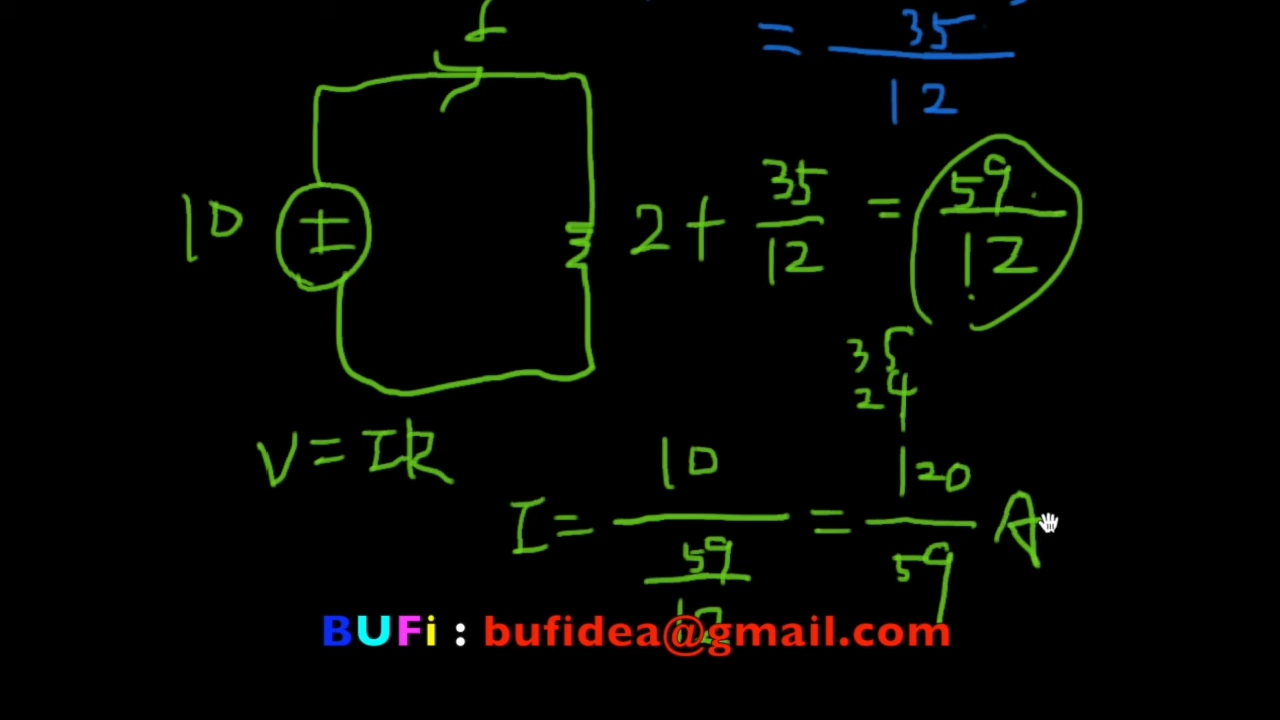 I
= 35/12
10 ± 2 + 35/12 = 59/12
35
24
V = IR
I = 10/(59/12) = 120/59 A
BUFi : bufidea@gmail.com